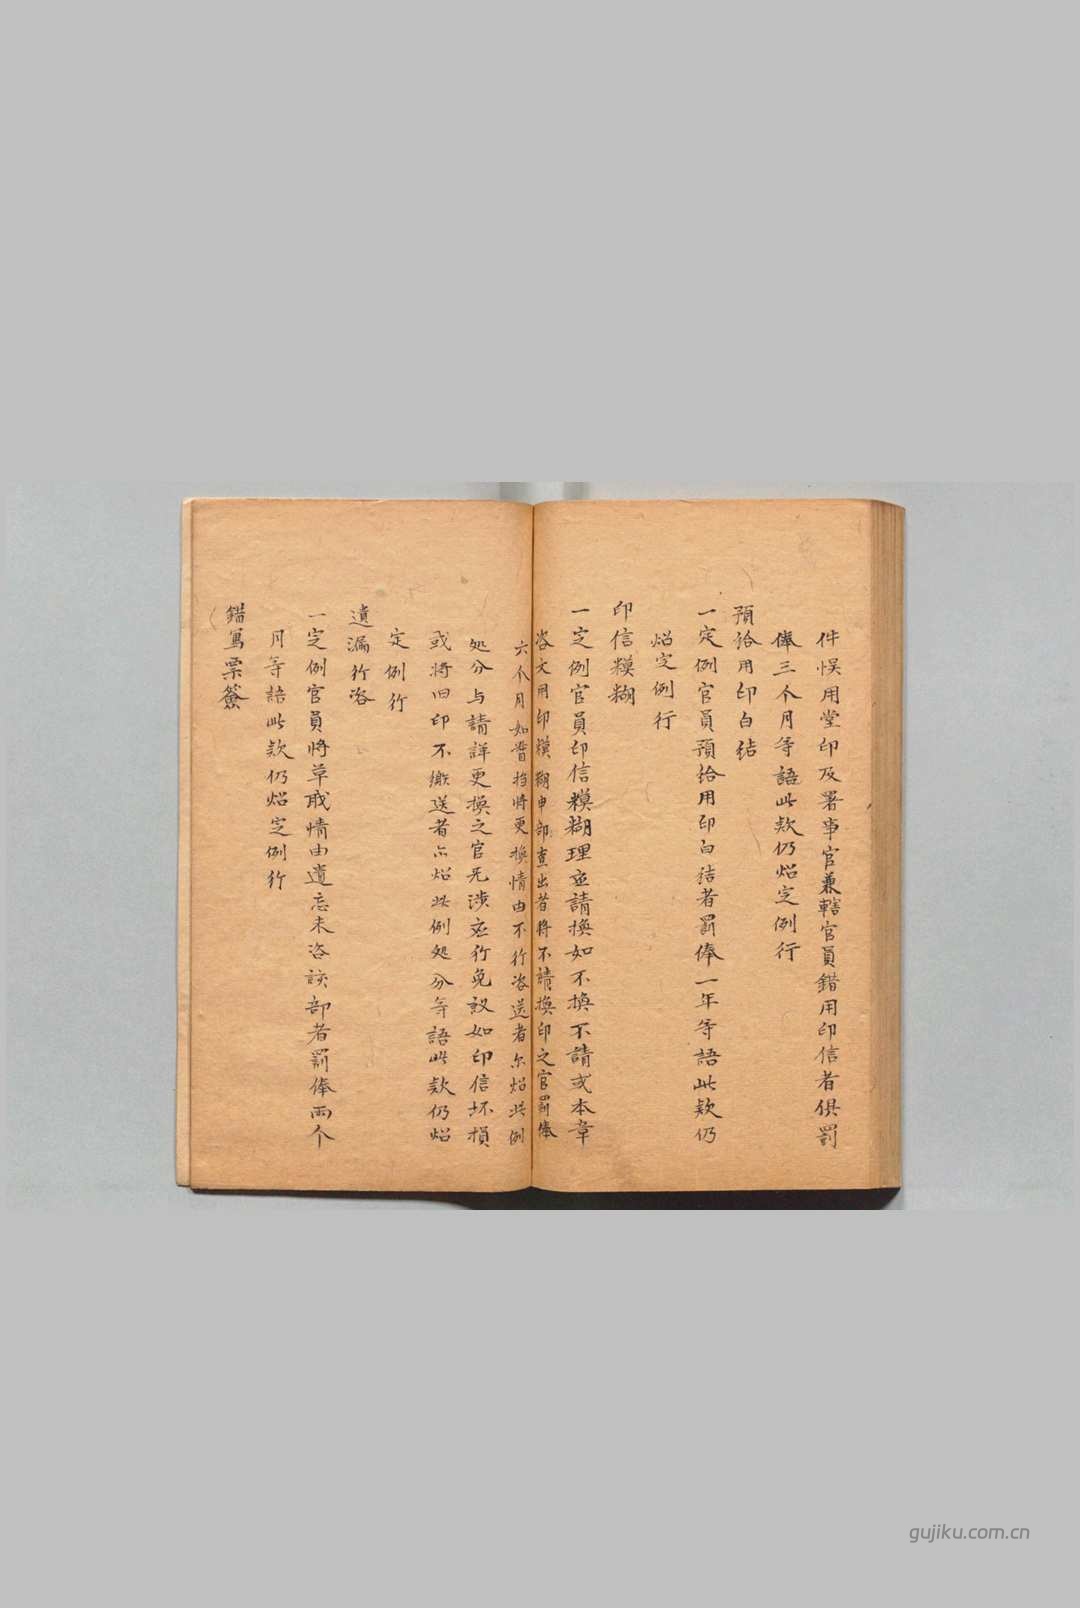 件悮用堂印及署事官兼轄官員錯用印信者俱罰
俸三个月等語此欵仍炤定例行
預给用印白结
一定例官員預给用印白结者罰俸一年等語此欵仍
炤定例行
印信糢糊
一定例官員印信糢糊理应請換如不換不請或本章
咨文用印糢糊申部查出者将不請換印之官罰俸
六个月如督撫将更換情由不行咨送者尔炤此例
处分与請詳更換之官无涉应行免议如印信坏損
或将旧印不繳送者亦炤此例处分等語此欵仍炤
定例行
遺漏行咨
一定例官員将草职情由遺忘未咨該部者罰俸兩个
月等語此欵仍炤定例行
錯寫票簽
gujiku.com.cn